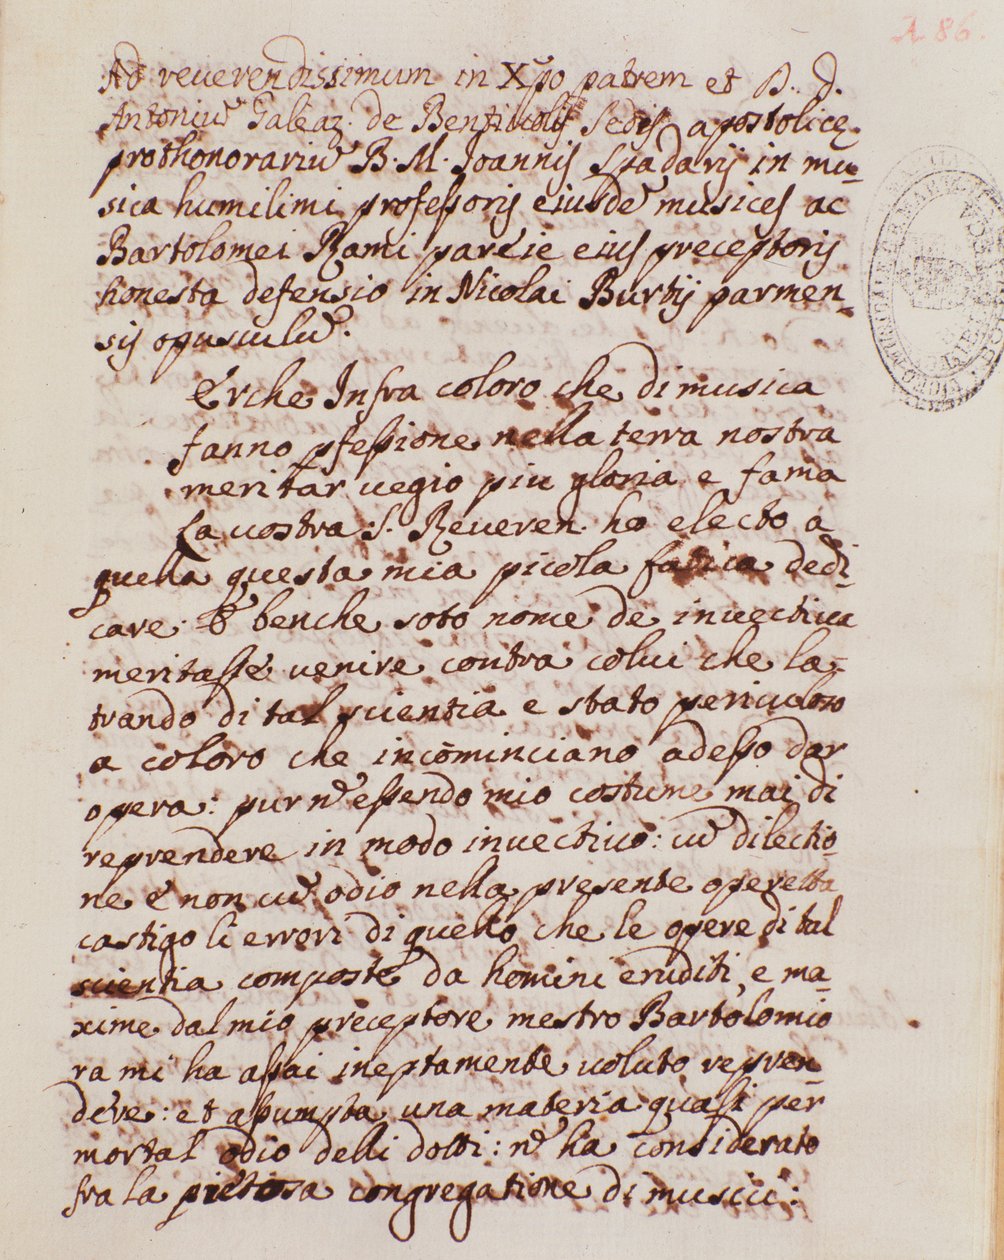 A 86.
Ad reuerendissimum in Xpo patrem et D. d.
Antoniũ Galeaz. de Bentiuolijs Sedis apostolicę
prothonorariũ B. M. Joannis Spadarij in mu-
sica humilimi professoris eiusdẽ musices ac
Bartolomei Rami pareie eius preceptoris
honesta defensio in Nicolai Burtij parmen-
sis opusculũ.
Erche Infra coloro che di musica
fanno pfessione nella terra nostra
meritar uegio piu gloria e fama
La uostra S. Reueren. ho electo a
quella questa mia picola fatica dedi
care: & benche soto nome de inuectiua
meritasse uenire contra colui che la-
trando di tal scientia e stato periculoso
a coloro che incõminciano adesso dar
opera: pur nõ essendo mio costume mai di
reprendere in modo inuectiuo: cũ dilectio-
ne & non cũ odio nella presente operetta
castigo li errori di quello che le opere di tal
scientia composte da homini eruditi, e ma-
xime dal mio preceptore mestro Bartolomio
ra mi ha assai ineptamente uoluto repren-
dere: et assumpta una materia quasi per
mortal odio delli dotti: nõ ha considerato
fra la pietosa congregatione di musici: